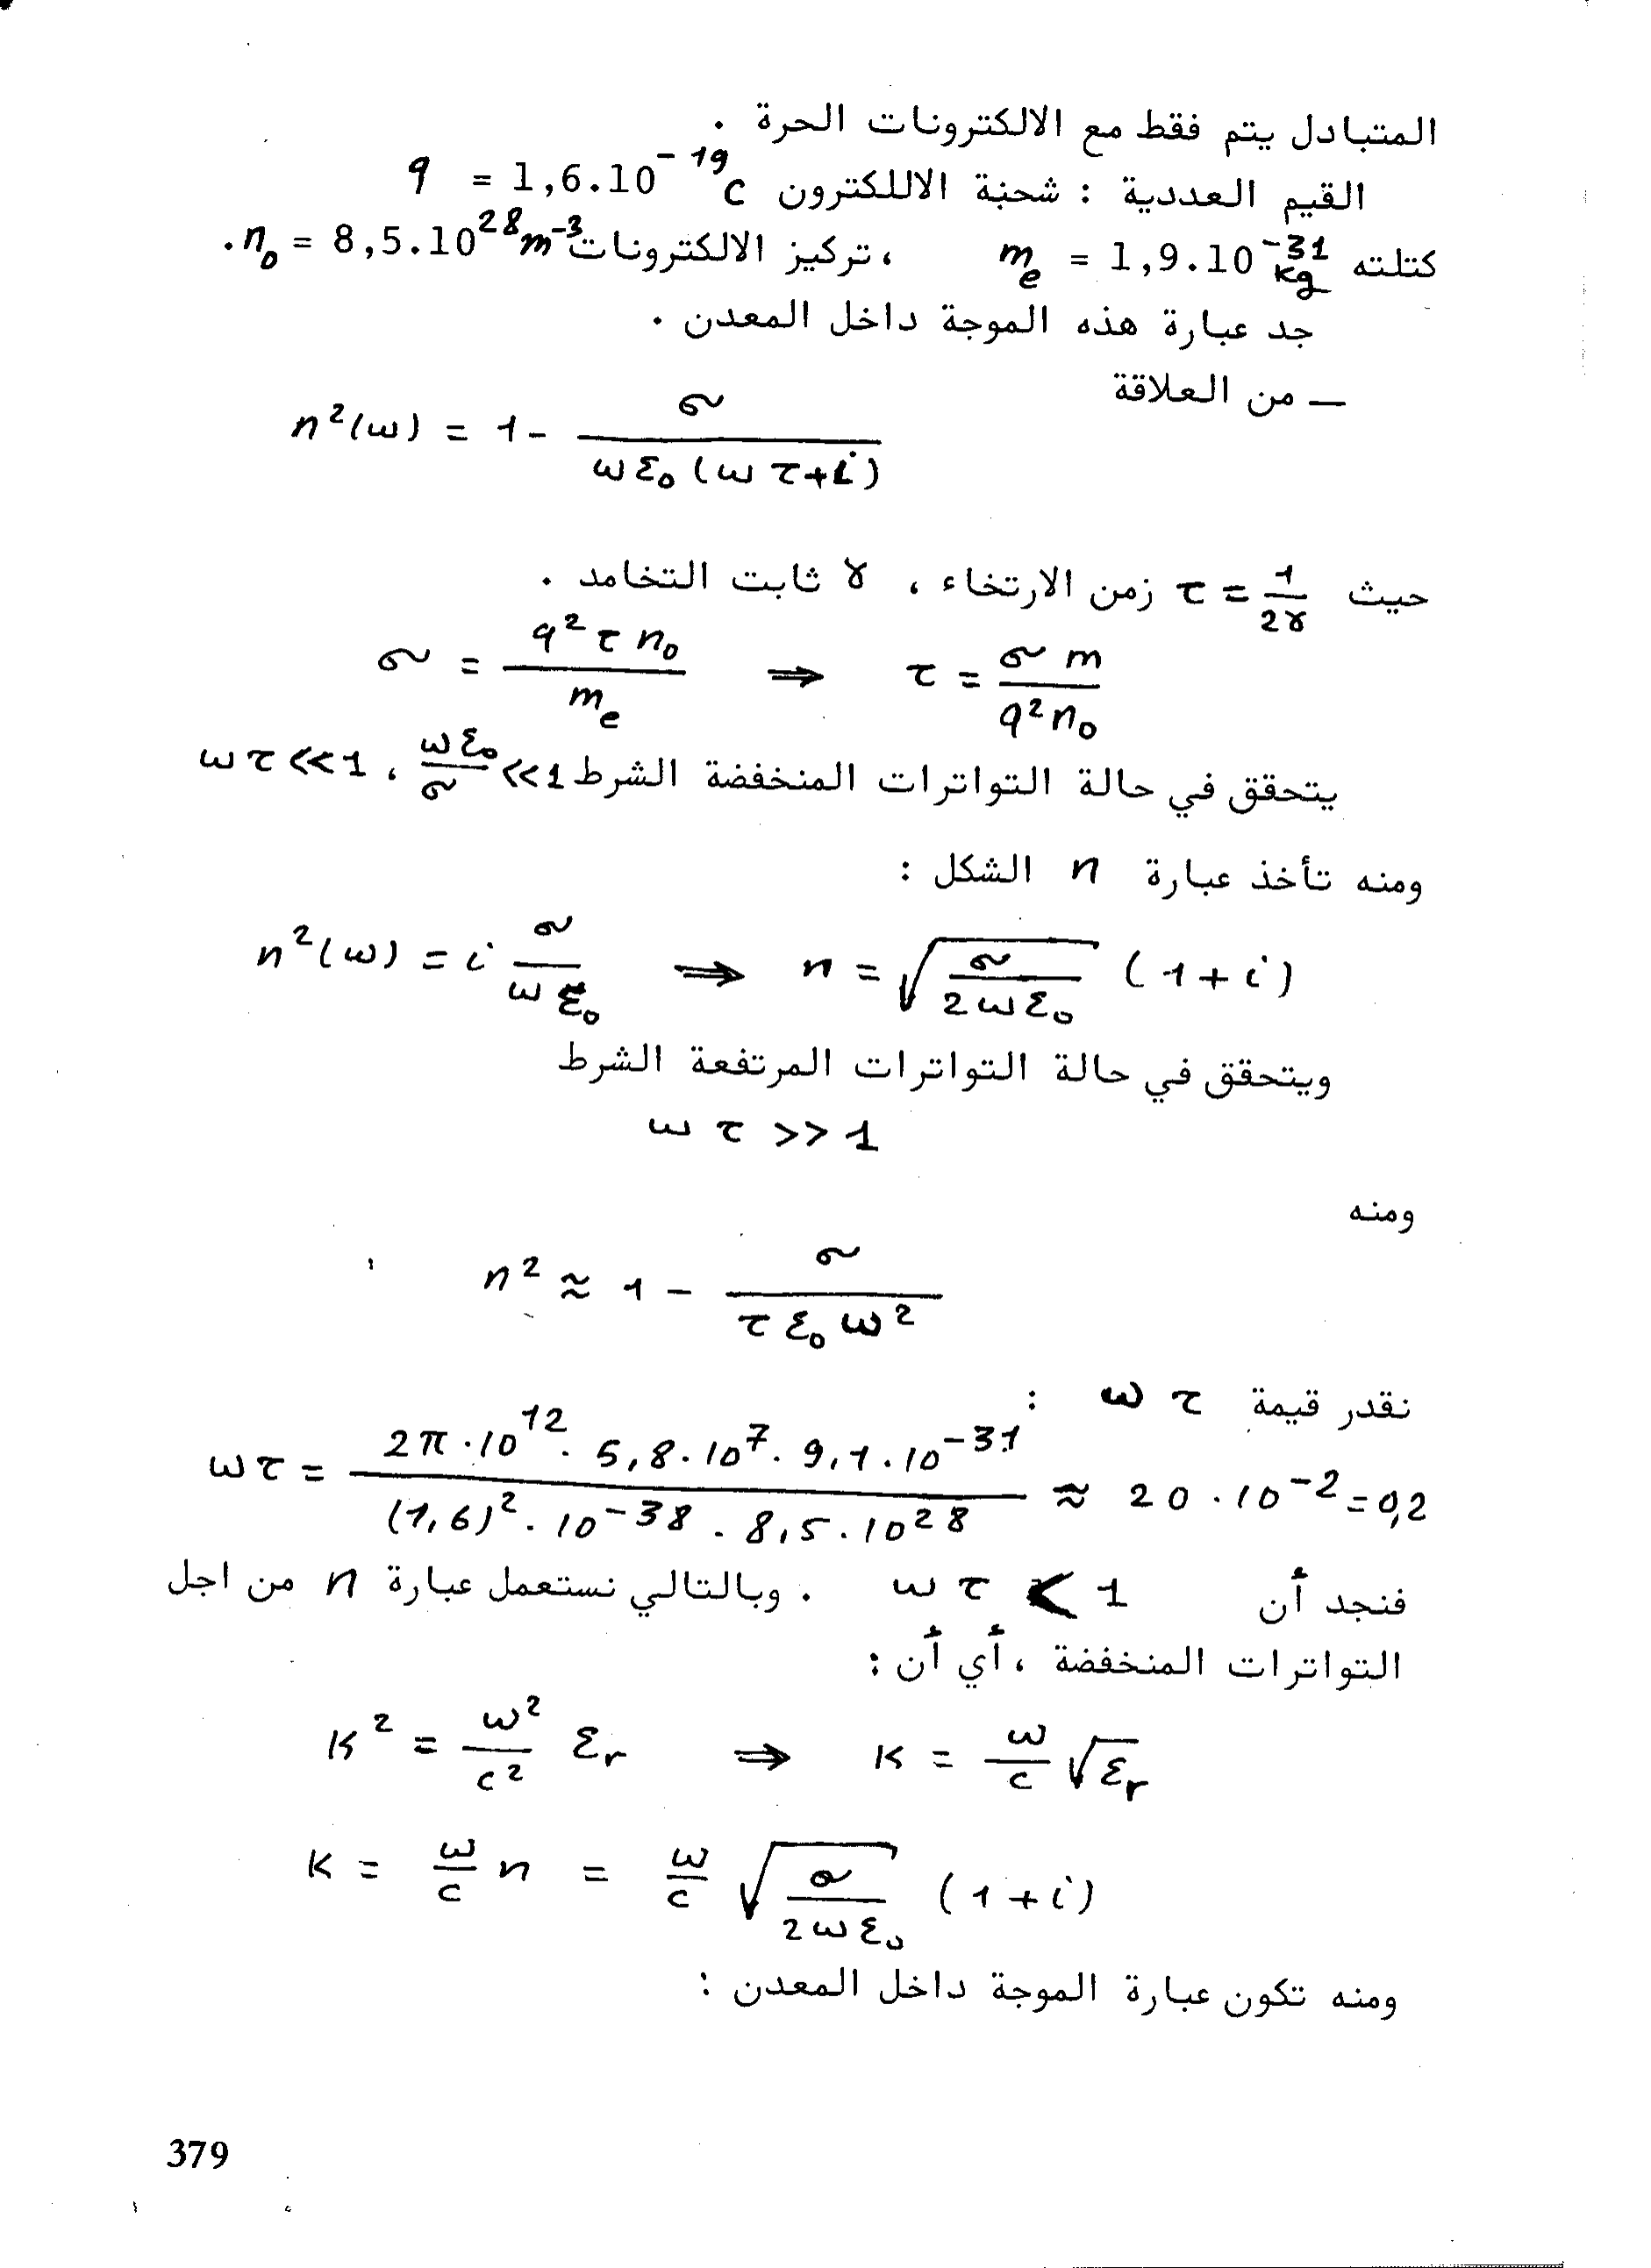 المتبادل يتم فقط مع الالكترونات الحرة .
القيم العددية : شحنة الاللكترون q = 1,6.10⁻¹⁹ C
كتلته mₑ = 1,9.10⁻³¹ kg ، تركيز الالكترونات n₀ = 8,5.10²⁸ m⁻³ .
جد عبارة هذه الموجة داخل المعدن .
— من العلاقة
n²(ω) = 1 - σ / (ω ε₀ (ω τ + i))
حيث τ = 1/2γ زمن الارتخاء ، γ ثابت التخامد .
σ = q² τ n₀ / mₑ ⇒ τ = σ m / q² n₀
يتحقق في حالة التواترات المنخفضة الشرط ωε₀/σ <<1 ، ω τ <<1
ومنه تأخذ عبارة n الشكل :
n²(ω) = i σ / ω ε₀ ⇒ n = √(σ / 2 ω ε₀) (1 + i)
ويتحقق في حالة التواترات المرتفعة الشرط
ω τ >> 1
ومنه
n² ≈ 1 - σ / τ ε₀ ω²
نقدر قيمة ω τ :
ω τ = 2π . 10¹² . 5,8 . 10⁷ . 9,1 . 10⁻³¹ / (1,6)² . 10⁻³⁸ . 8,5 . 10²⁸ ≈ 20 . 10⁻² = 0,2
فنجد أن ω τ < 1 . وبالتالي نستعمل عبارة n من اجل
التواترات المنخفضة ، أي أن :
K² = ω²/c² εᵣ ⇒ K = ω/c √εᵣ
K = ω/c n = ω/c √(σ / 2 ω ε₀) (1 + i)
ومنه تكون عبارة الموجة داخل المعدن :
379